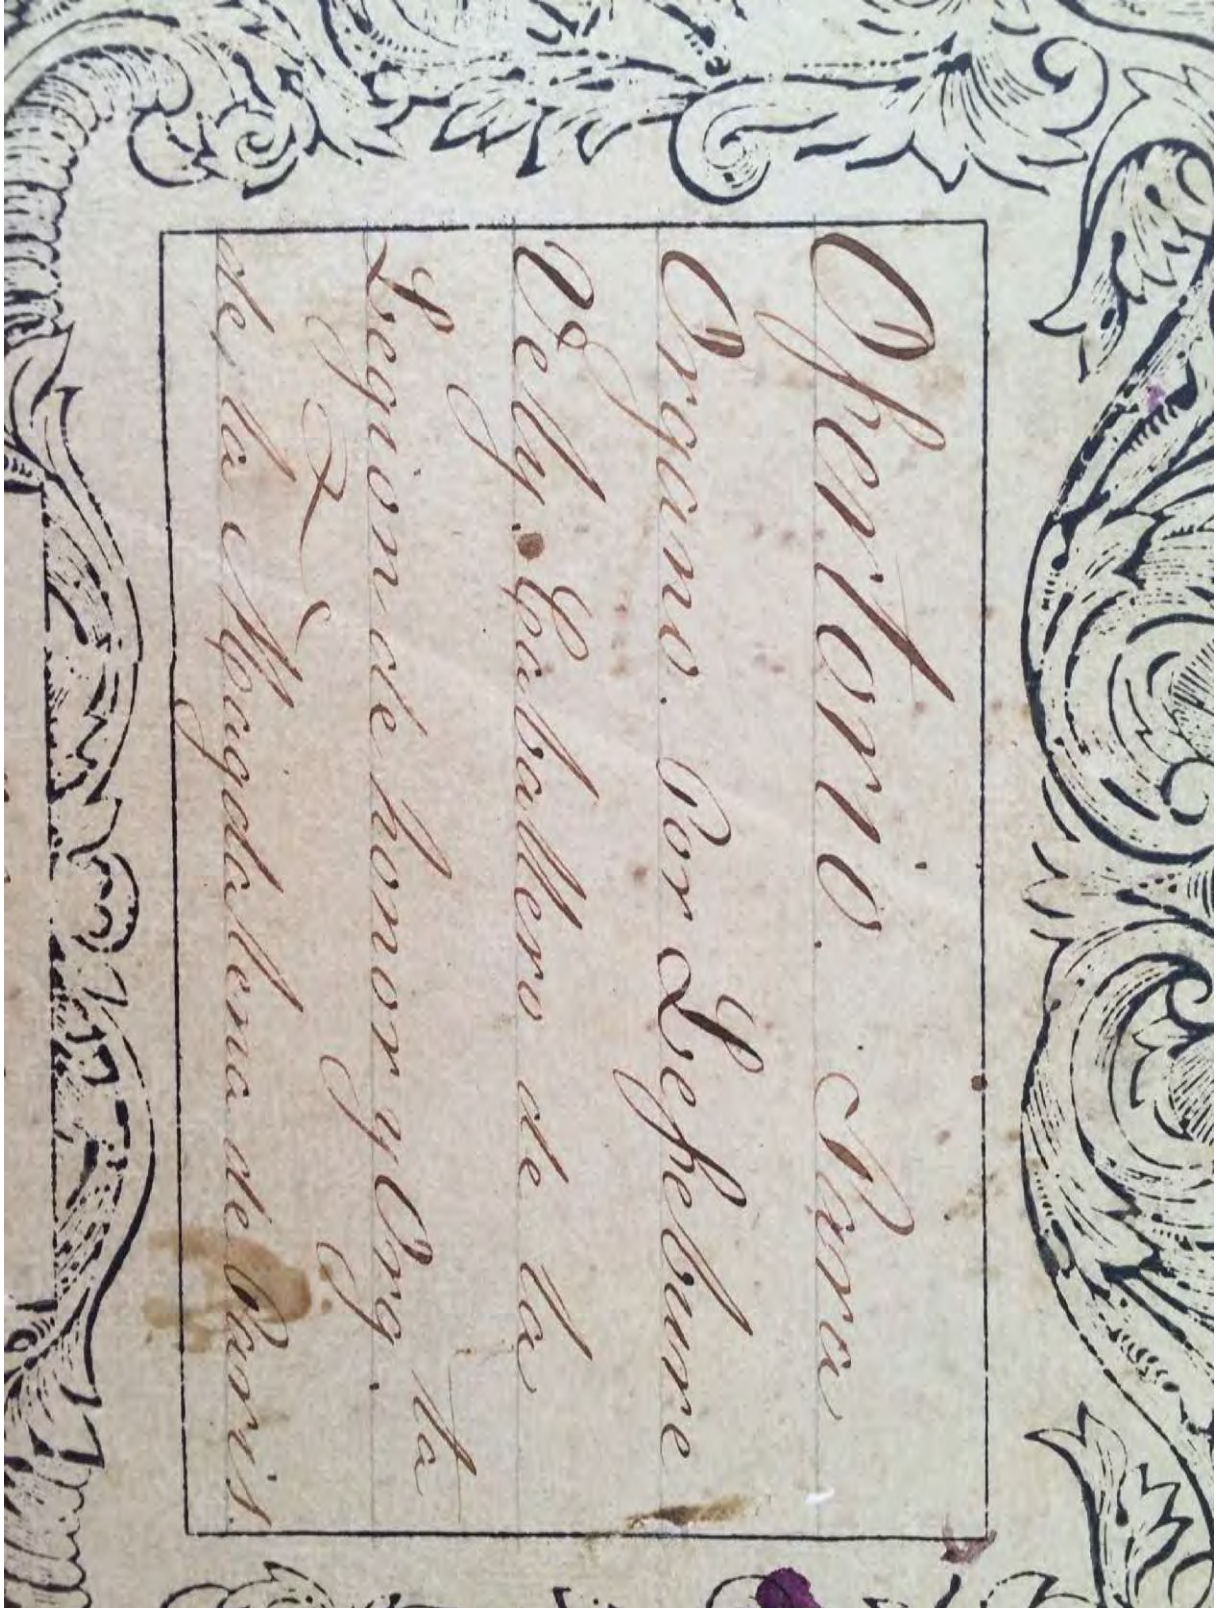 Ofertorio. Para
Organo. Por Lefebure
Velly. Caballero de la
Legion de honor y Org. ta
de la Magdalena de Paris.